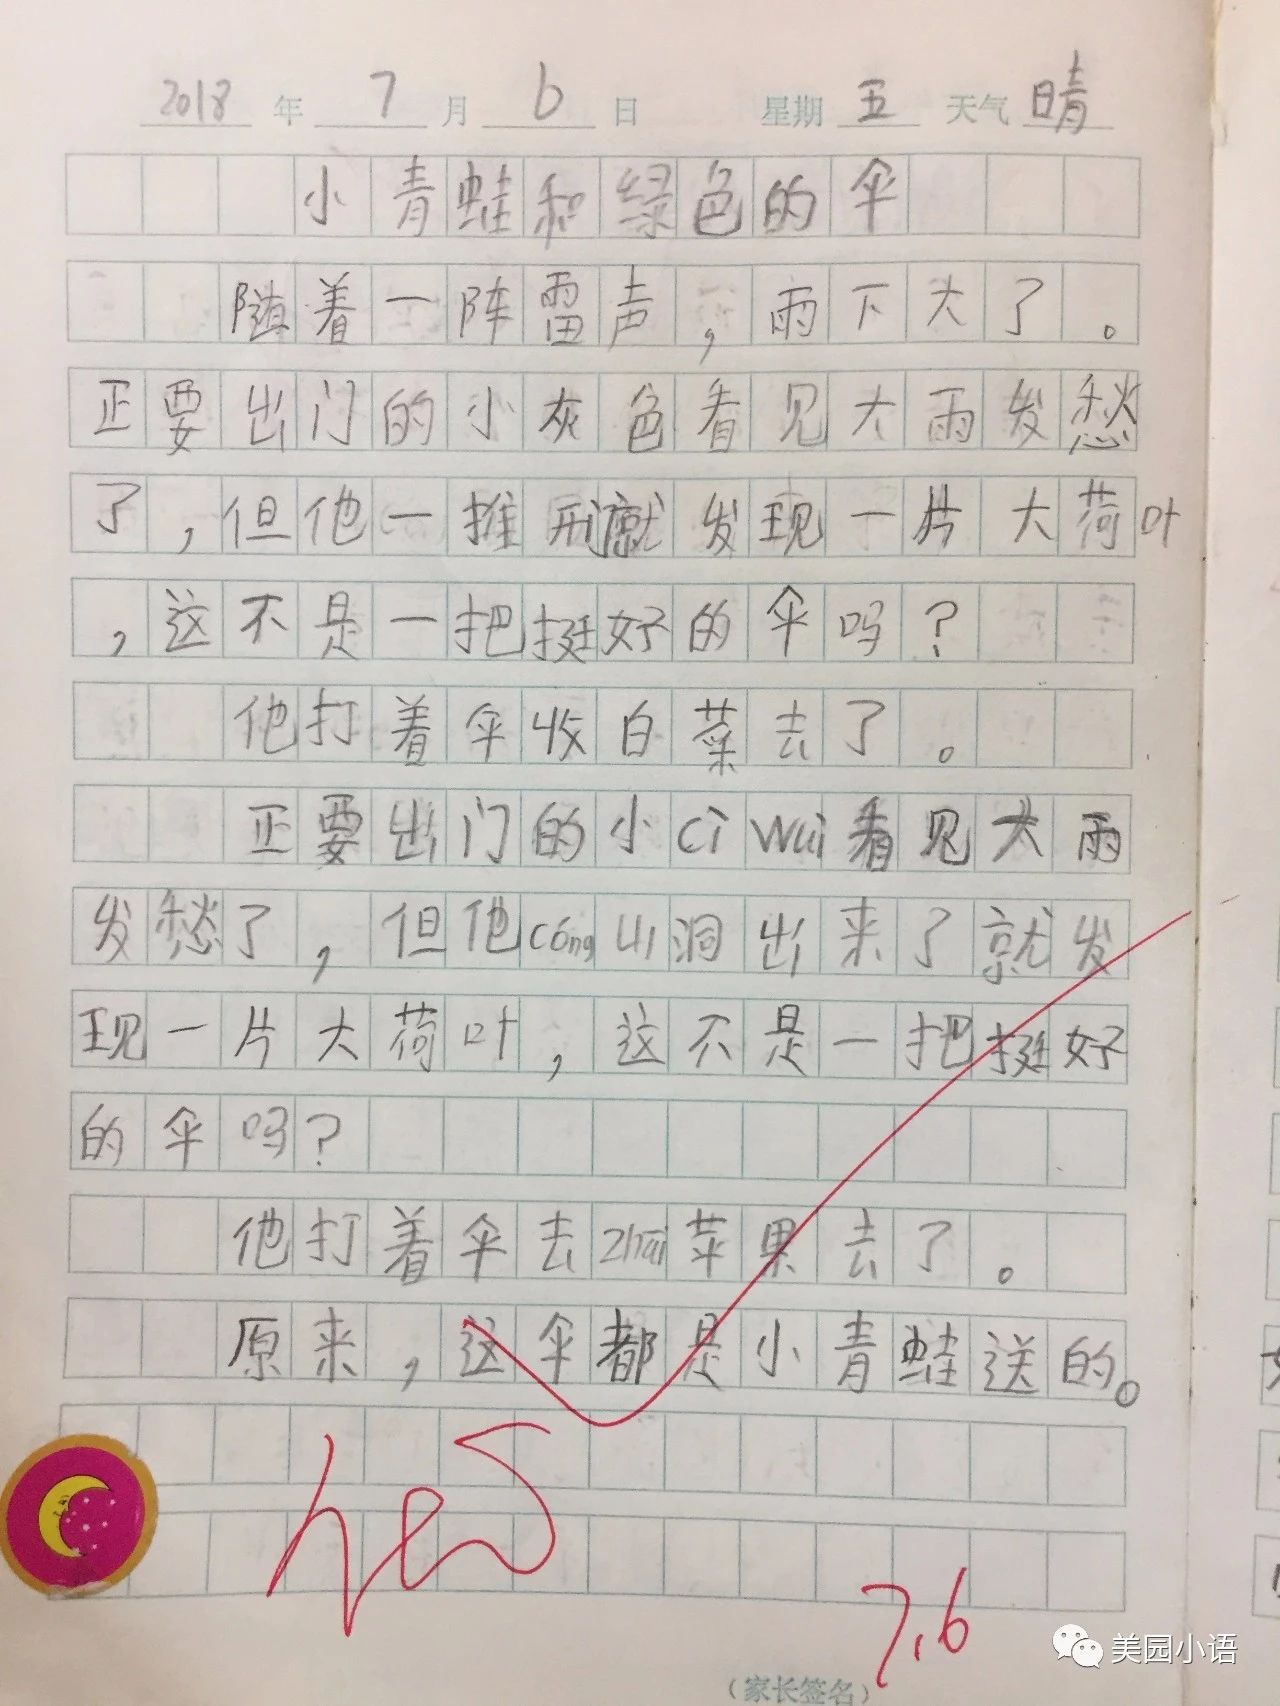 2018 年 7 月 6 日 星期 五 天气 晴
小青蛙和绿色的伞
随着一阵雷声,雨下大了。
正要出门的小灰色看见大雨发愁
了,但他一推就发现一片大荷叶
,这不是一把挺好的伞吗?
他打着伞收白菜去了。
正要出门的小cì wui看见大雨
发愁了,但他cóng山洞出来了就发
现一片大荷叶,这不是一把挺好
的伞吗?
他打着伞去zhāi苹果去了。
原来,这伞都是小青蛙送的。
7.6
(家长签名)
美园小语